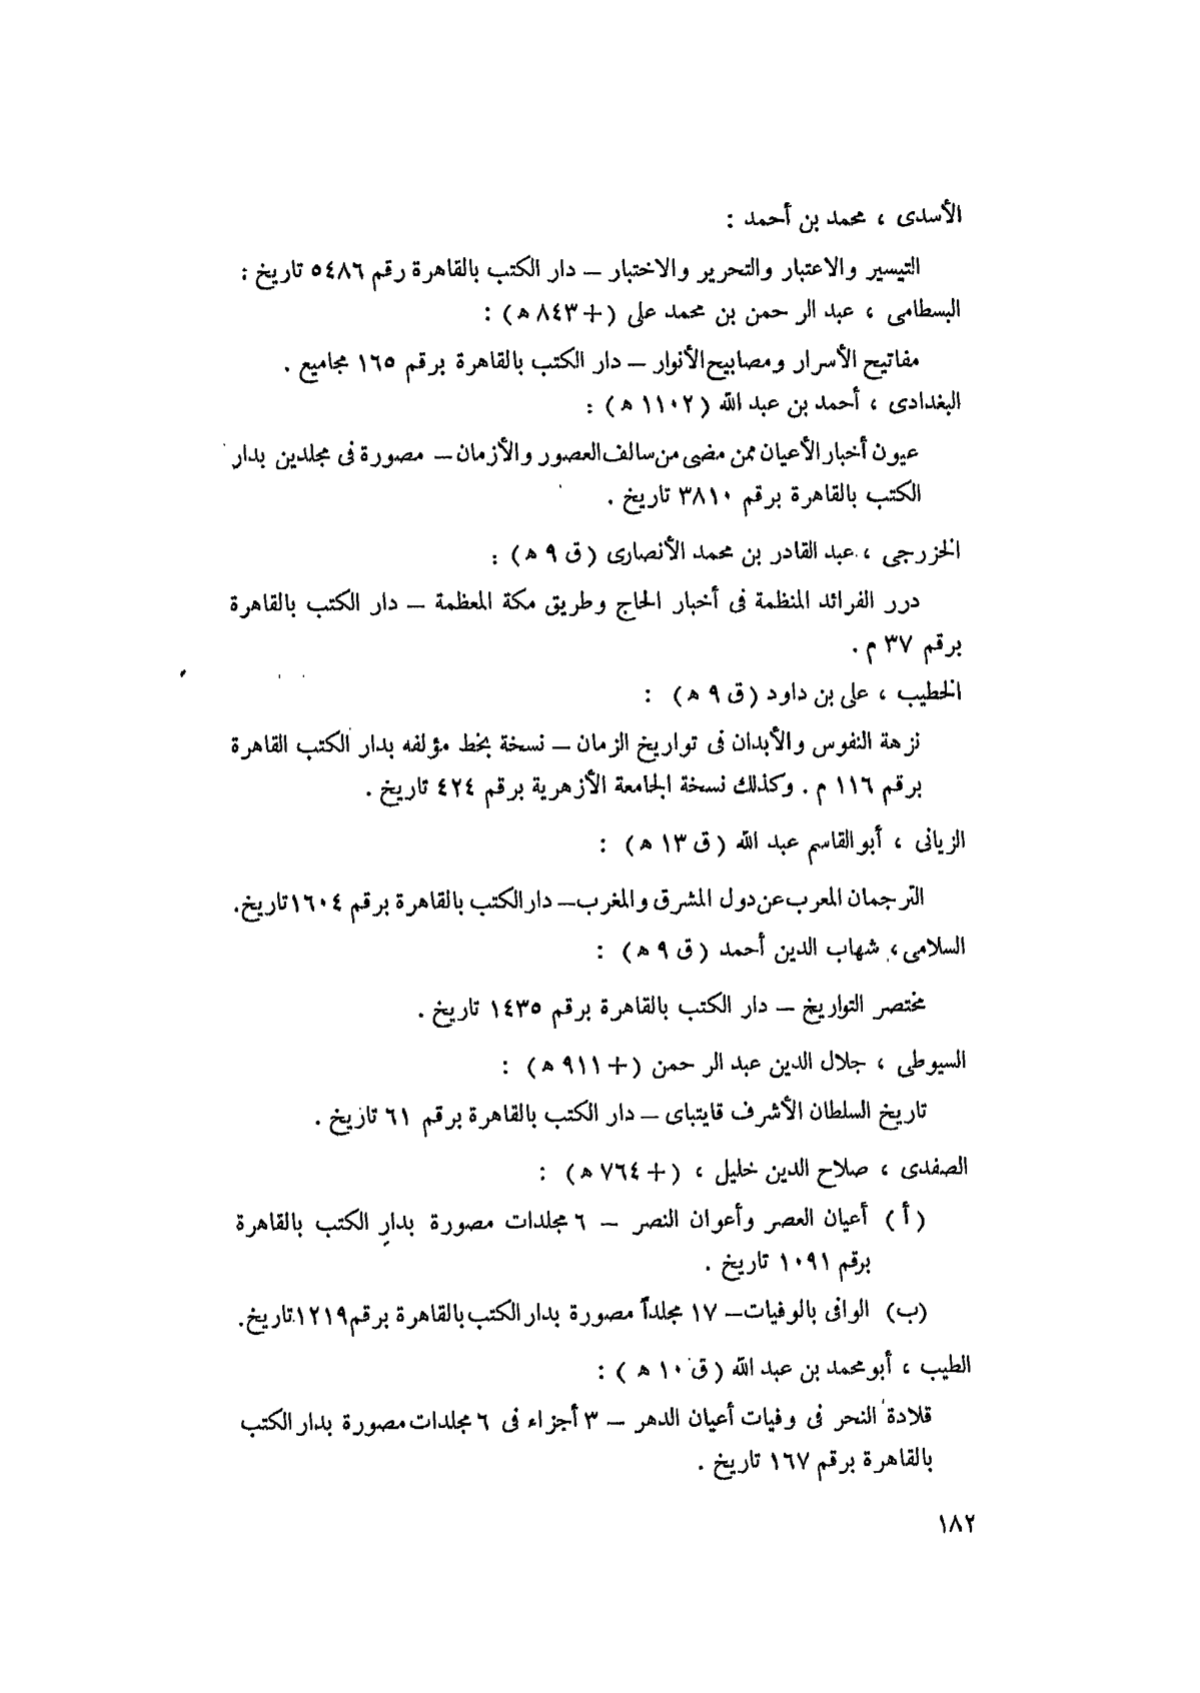 الأسدى ، محمد بن أحمد :
التيسير والاعتبار والتحرير والاختبار – دار الكتب بالقاهرة رقم ٥٤٨٦ تاريخ :
البسطامى ، عبد الرحمن بن محمد على (+ ٨٤٣ ه) :
مفاتيح الأسرار ومصابيح الأنوار – دار الكتب بالقاهرة برقم ١٦٥ مجاميع .
البغدادى ، أحمد بن عبد الله (١١٠٢ ه) :
عيون أخبار الأعيان ممن مضى من سالف العصور والأزمان – مصورة فى مجلدين بدار
الكتب بالقاهرة برقم ٣٨١٠ تاريخ .
الخزرجى ، عبد القادر بن محمد الأنصارى (ق ٩ ه) :
درر الفرائد المنظمة فى أخبار الحاج وطريق مكة المعظمة – دار الكتب بالقاهرة
برقم ٣٧ م .
الخطيب ، على بن داود (ق ٩ ه) :
نزهة النفوس والأبدان فى تواريخ الزمان – نسخة بخط مؤلفه بدار الكتب القاهرة
برقم ١١٦ م . وكذلك نسخة الجامعة الأزهرية برقم ٤٢٤ تاريخ .
الزيانى ، أبو القاسم عبد الله (ق ١٣ ه) :
الترجمان المعرب عن دول المشرق والمغرب – دار الكتب بالقاهرة برقم ١٦٠٤ تاريخ.
السلامى ، شهاب الدين أحمد (ق ٩ ه) :
مختصر التواريخ – دار الكتب بالقاهرة برقم ١٤٣٥ تاريخ .
السيوطى ، جلال الدين عبد الرحمن (+ ٩١١ ه) :
تاريخ السلطان الأشرف قايتباى – دار الكتب بالقاهرة برقم ٦١ تاريخ .
الصفدى ، صلاح الدين خليل ، (+ ٧٦٤ ه) :
(أ) أعيان العصر وأعوان النصر – ٦ مجلدات مصورة بدار الكتب بالقاهرة
برقم ١٠٩١ تاريخ .
(ب) الوافى بالوفيات – ١٧ مجلداً مصورة بدار الكتب بالقاهرة برقم ١٢١٩ تاريخ.
الطيب ، أبو محمد بن عبد الله (ق ١٠ ه) :
قلادة النحر فى وفيات أعيان الدهر – ٣ أجزاء فى ٦ مجلدات مصورة بدار الكتب
بالقاهرة برقم ١٦٧ تاريخ .
١٨٢